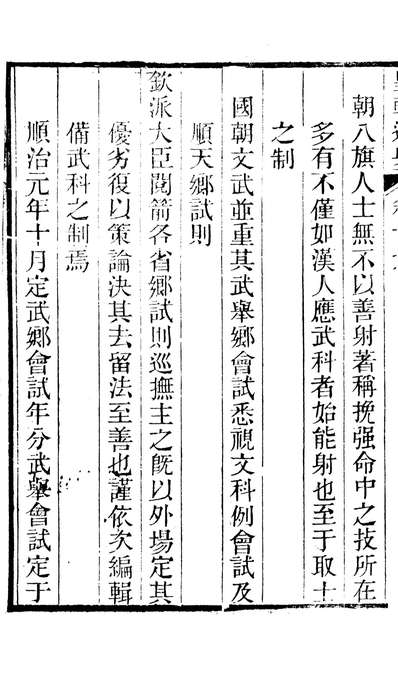 朝八旗人士無不以善射著稱挽强命中之技所在
多有不僅如漢人應武科者始能射也至于取士
之制
國朝文武並重其武舉鄉會試悉視文科例會試及
順天鄉試則
欽派大臣閱箭各省鄉試則巡撫主之旣以外場定其
優劣復以策論決其去留法至善也謹依次編輯
備武科之制焉
順治元年十月定武鄉會試年分武舉會試定于